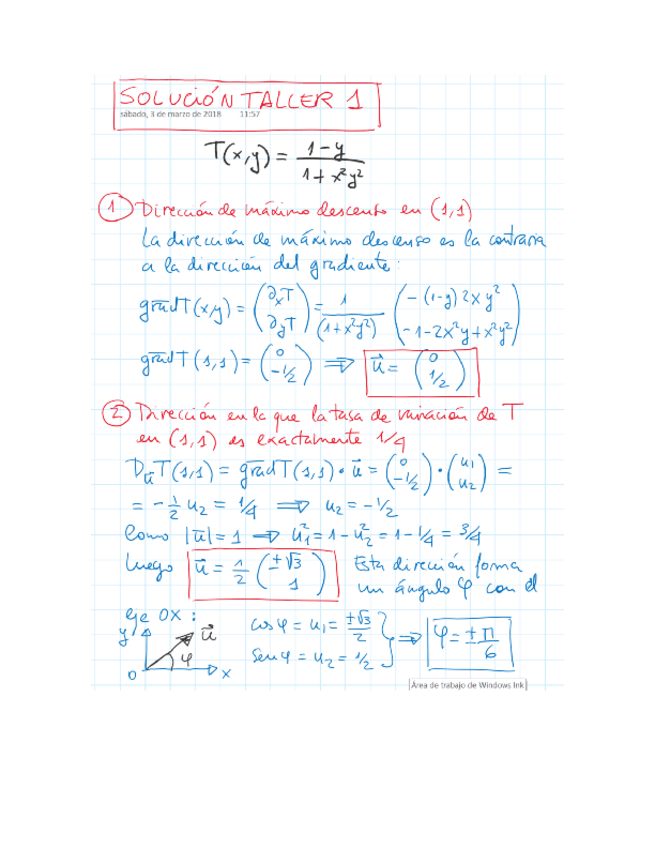 SOLUCIÓN TALLER 1
sábado, 3 de marzo de 2018 11:57
T(x,y) = (1-y)/(1+x²y²)
① Dirección de máximo descenso en (1,1)
La dirección de máximo descenso es la contraria
a la dirección del gradiente:
grad T(x,y) = (∂ₓT, ∂ᵧT) = 1/(1+x²y²) (-(1-y)2xy², -1-2x²y+x²y²)
grad T(1,1) = (0, -1/2) ⟹ u⃗ = (0, 1/2)
② Dirección en la que la tasa de variación de T
en (1,1) es exactamente 1/4
D_u⃗ T(1,1) = grad T(1,1) · u⃗ = (0, -1/2) · (u₁, u₂) =
= -1/2 u₂ = 1/4 ⟹ u₂ = -1/2
Como |u⃗| = 1 ⟹ u₁² = 1 - u₂² = 1 - 1/4 = 3/4
Luego u⃗ = 1/2 (±√3, 1) Esta dirección forma
un ángulo φ con el
eje OX:
cos φ = u₁ = ±√3/2
sen φ = u₂ = 1/2 ⟹ φ = ±π/6
y u⃗ φ O x
Área de trabajo de Windows Ink